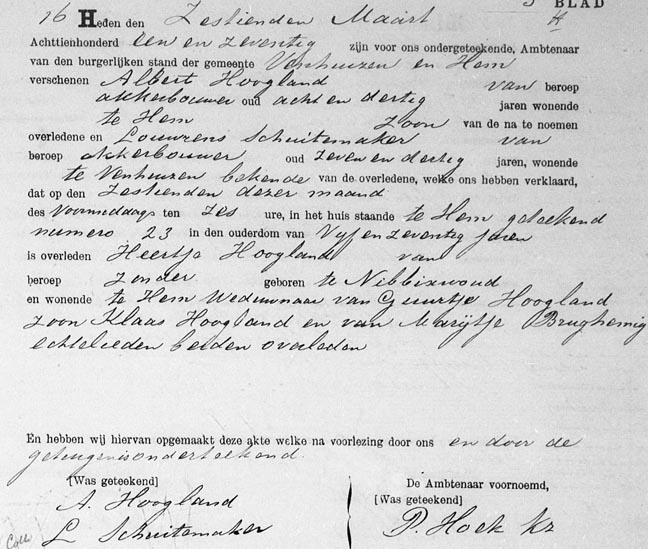 BLAD
16 Heden den Zestienden Maart
Achttienhonderd een en zeventig zijn voor ons ondergeteekende, Ambtenaar
van den burgerlijken stand der gemeente Venhuizen en Hem
verschenen Albert Hoogland van beroep
akkerbouwer oud acht en dertig jaren wonende
te Hem Zoon van de na te noemen
overledene en Louwrens Schuitemaker van
beroep akkerbouwer oud zeven en dertig jaren, wonende
te Venhuizen bekende van de overledene, welke ons hebben verklaard,
dat op den Zestienden dezer maand
des Voormiddags ten zes ure, in het huis staande te Hem geteekend
numero 23 in den ouderdom van Vyf en zeventig jaren
is overleden Heertje Hoogland van
beroep zonder geboren te Nibbixwoud
en wonende te Hem Weduwnaar van Guurtje Hoogland
zoon Klaas Hoogland en van Marijtje
echtelieden beiden overleden
En hebben wij hiervan opgemaakt deze akte welke na voorlezing door ons en door de
getuigen is onderteekend.
[Was geteekend] De Ambtenaar voornoemd,
A. Hoogland [Was geteekend]
L Schuitemaker P. Hoek Kz